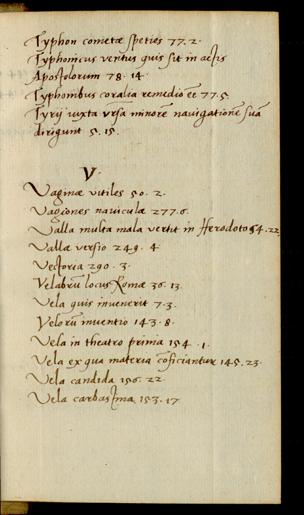 Typhon cometæ speties 77.2.
Typhonicus ventus quis sit in actis
Apostolorum 78.14.
Typhonibus coralia remedio eē 77.5
Tyrij iuxta vrsā minorē navigationē suā
dirigunt 5.15.
V.
Vaginæ vitiles 50.2.
Vagiones naviculæ 277.6
Valla multa mala vertit in Herodoto 54.22
Vallæ versio 249.4
Vectoria 290.3.
Velabrū locus Romæ 36.13.
Vela quis invenerit 7.3.
Velorū inventio 143.8.
Vela in theatro prima 154.1.
Vela ex qua materia cōficiantur 145.23.
Vela candida 156.22
Vela carbasina 153.17